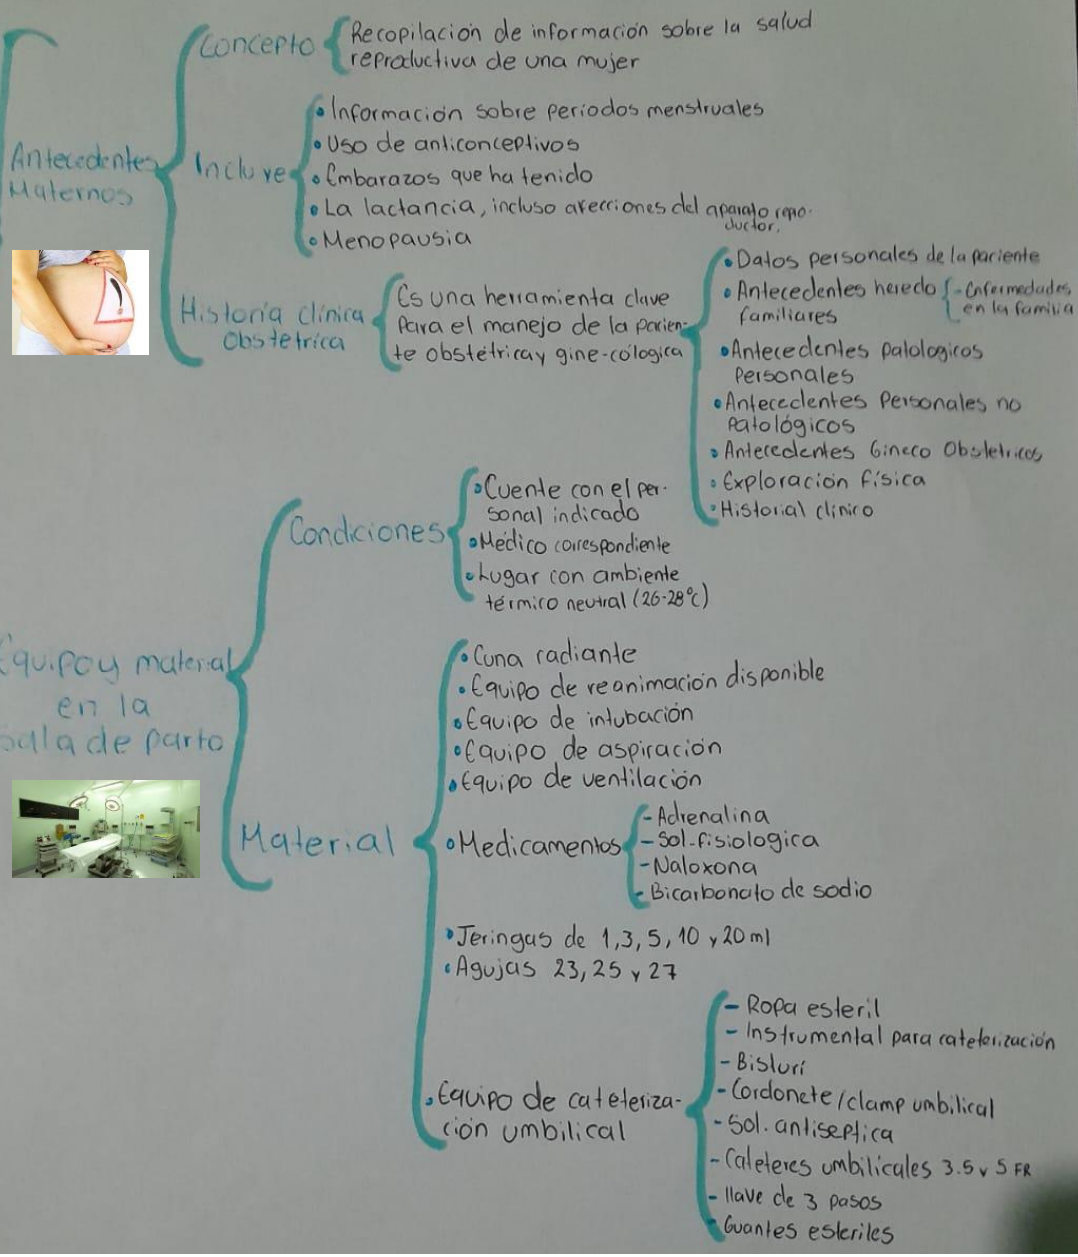 Concepto
Recopilación de información sobre la salud
reproductiva de una mujer
Antecedentes
Maternos
Incluye
• Información sobre periodos menstruales
• Uso de anticonceptivos
• Embarazos que ha tenido
• La lactancia, incluso afecciones del aparato repro-
ductor.
• Menopausia
Historia clínica
Obstétrica
Es una herramienta clave
para el manejo de la pacien-
te obstétrica y gine-cólogica
• Datos personales de la paciente
• Antecedentes heredo
familiares
- Enfermedades
en la familia
• Antecedentes patologicos
Personales
• Antecedentes Personales no
Patológicos
• Antecedentes Gineco Obstetricos
• Exploración física
• Historial clínico
Equipo y material
en la
sala de parto
Condiciones
• Cuente con el per-
sonal indicado
• Médico correspondiente
• Lugar con ambiente
térmico neutral (26-28°c)
Material
• Cuna radiante
• Equipo de reanimación disponible
• Equipo de intubación
• Equipo de aspiración
• Equipo de ventilación
• Medicamentos
- Adrenalina
- Sol. fisiologica
- Naloxona
- Bicarbonato de sodio
• Jeringas de 1,3, 5, 10 y 20 ml
• Agujas 23, 25 y 27
• Equipo de cateteriza-
ción umbilical
- Ropa esteril
- Instrumental para cateterización
- Bisturí
- Cordonete/clamp umbilical
- Sol. antiseptica
- Cateteres umbilicales 3.5 y 5 FR
- llave de 3 pasos
- Guantes esteriles